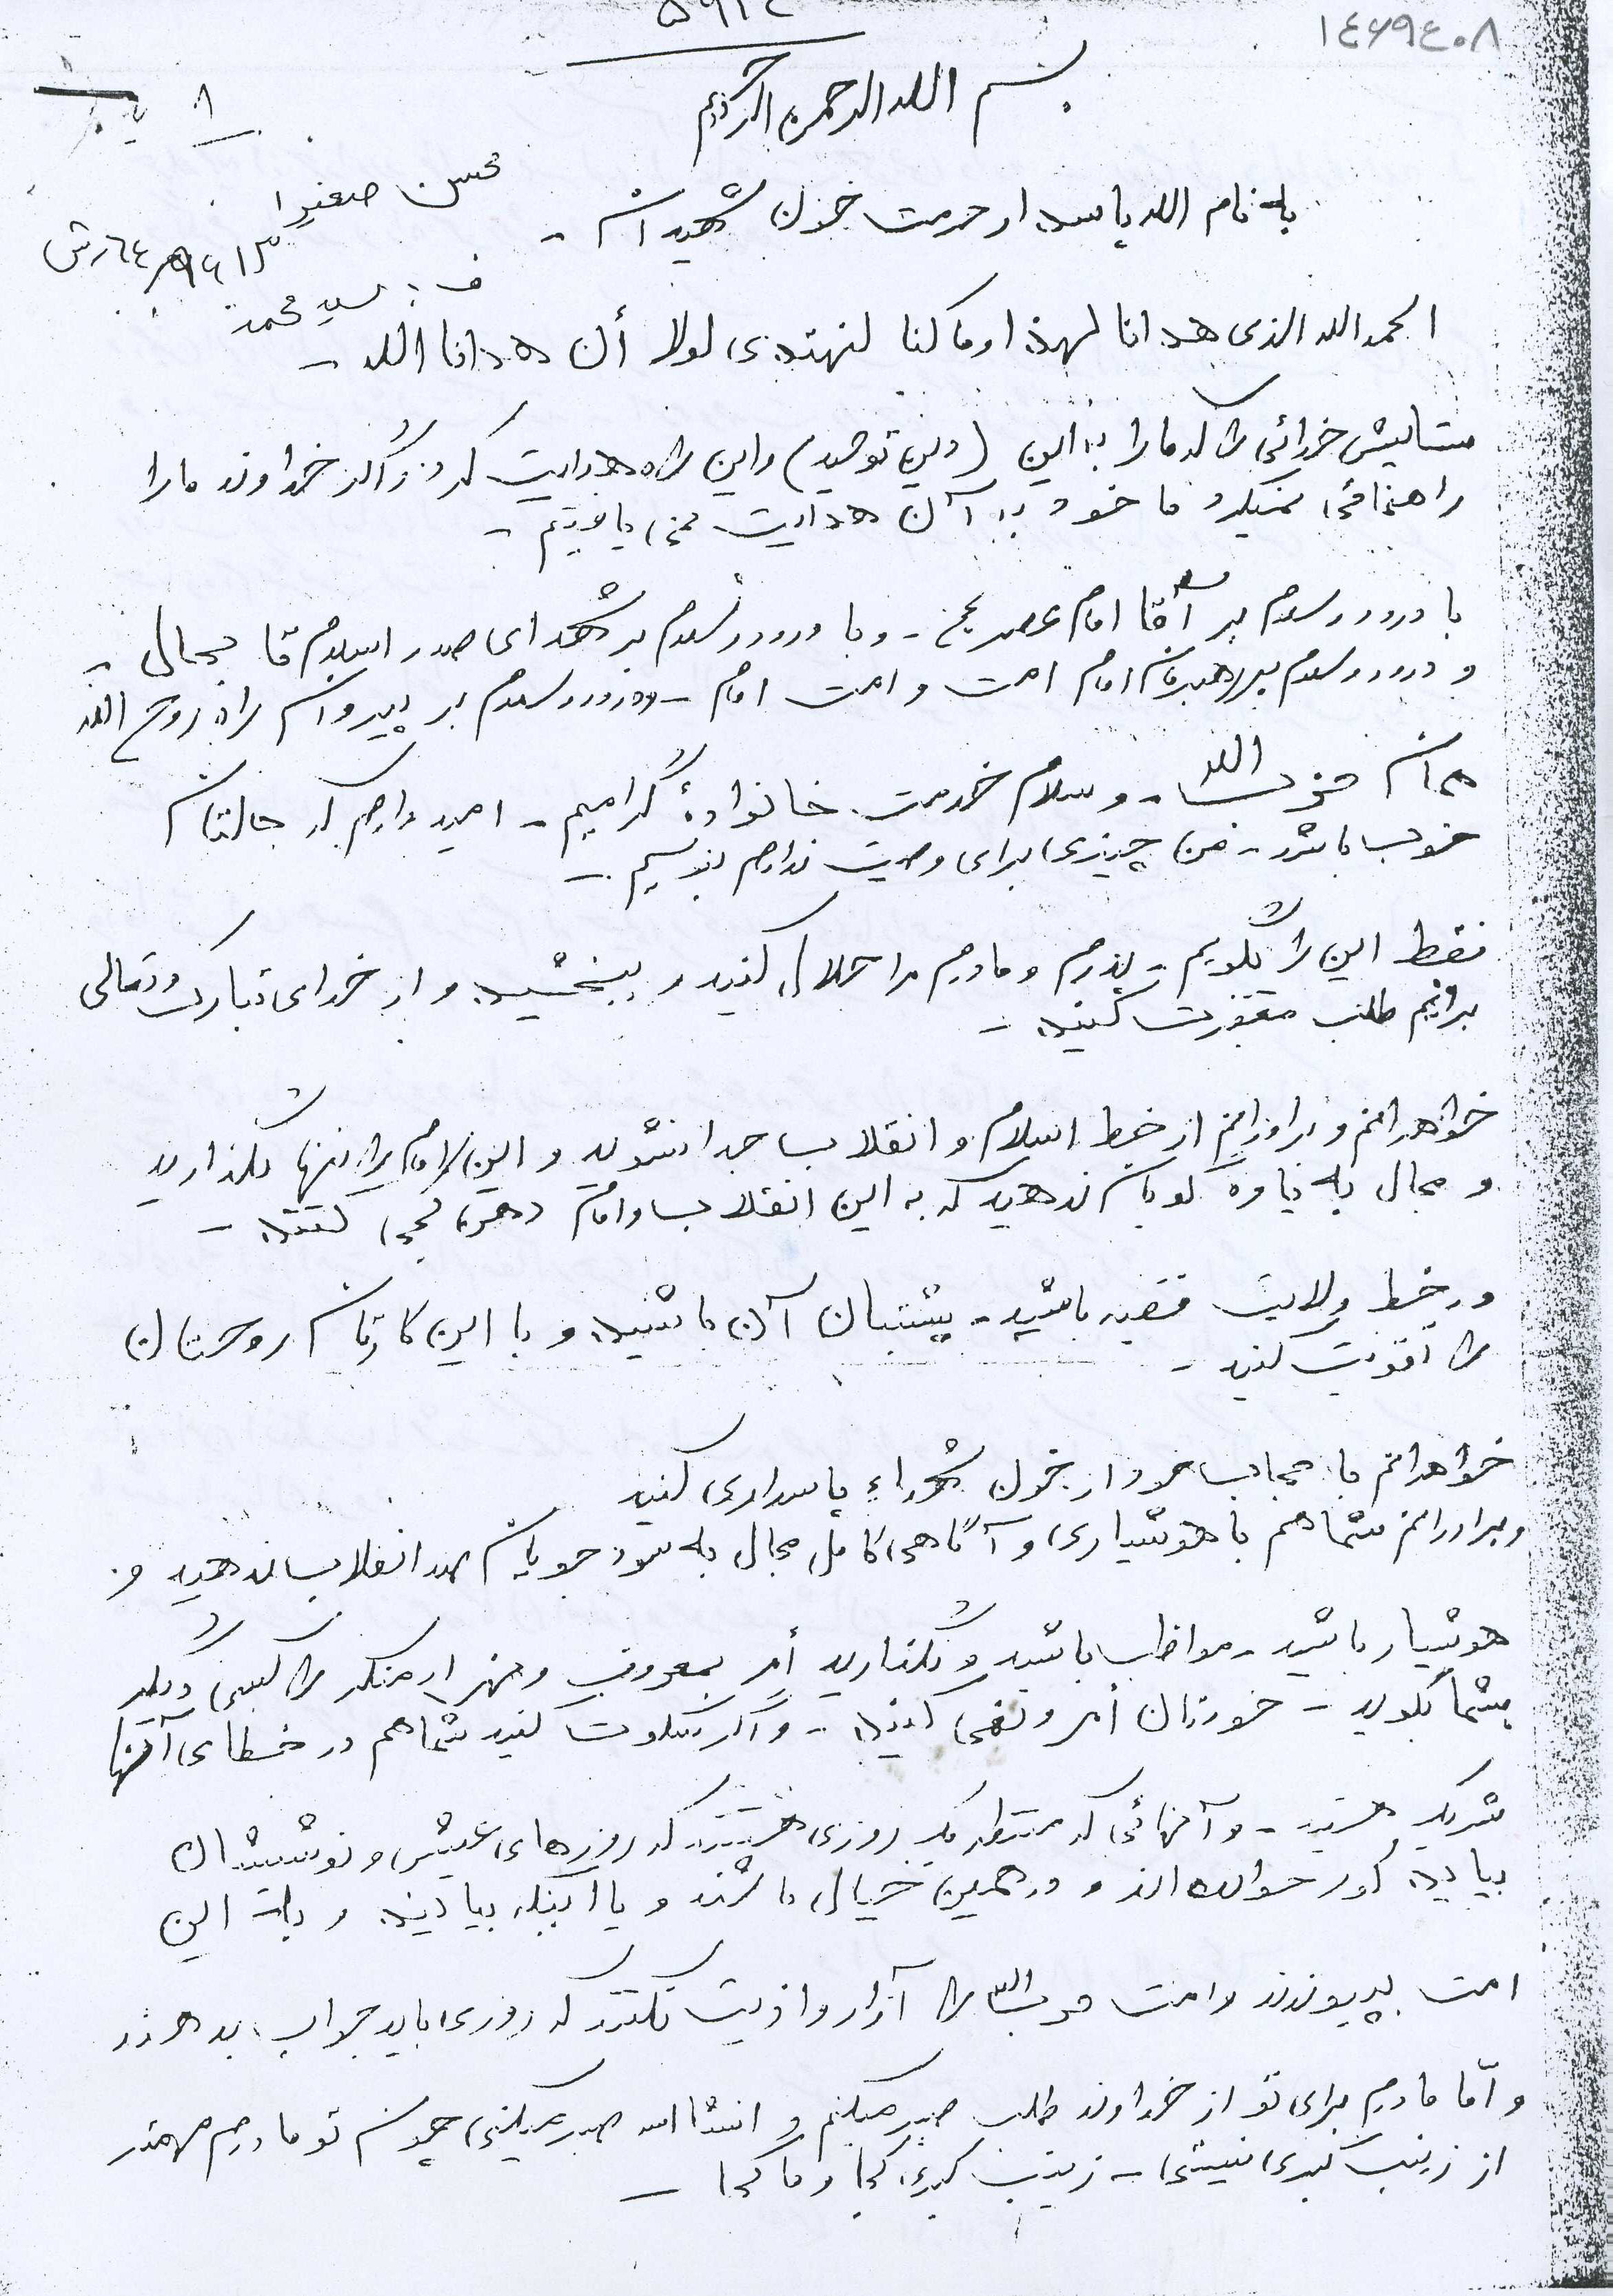 ۱٤۶۹٤۰۸
بسم الله الرحمن الرحیم
۸
محسن صفیرا
ف: سید محمد
به نام الله پاسدار حرمت خون شهیدان -
الحمد الله الذی هدانا لهذا وما کنا لنهتدی لولا أن هدانا الله -
ستایش خدائی را که ما را به این (دین توحید) و این راه هدایت کرد و اگر خداوند ما را
راهنمائی نمیکرد ما خود به آن هدایت نمی یافتیم -
با درود و سلام بر آقا امام عصر عج - و با درود و سلام بر شهدای صدر اسلام تا بحال -
و درود و سلام بر رهبرمان امام امت و امت امام - و درود و سلام بر پیروان راه روح الله
همان حزب الله - و سلام خدمت خانوادهٔ گرامیم - امید وارم که حالتان
خوب باشد - من چیزی برای وصیت ندارم بنویسم -
فقط این را بگویم - پدرم و مادرم مرا حلال کنید و ببخشید و از خدای تبارک و تعالی
برایم طلب مغفرت کنید -
خواهرانم و برادرانم از خط اسلام و انقلاب جدا نشوید و این امام را تنها نگذارید
و مجال به یاوه گویان ندهید که به این انقلاب و امام دهن کجی کنند -
در خط ولایت فقیه باشید - پشتبان آن باشید و با این کارتان روحتان
را تقویت کنید -
خواهرانم با حجاب خود از خون شهداء پاسداری کنید
و برادرانم شما هم با هوشیاری و آگاهی کامل مجال به سود جویان ضد انقلاب ندهید و
هوشیار باشید - مواظب باشید و نگذارید أمر بمعروف و نهی از منکر را کسی دیگر
بشما بگوید - خودتان أمر و نهی کنید - و اگر سکوت کنید شما هم در خطای آنها
شریک هستید - و آنهائی که منتظر یک روزی هستند که روزهای عیش و نوششان
بیاید کور خوانده اند و در همین خیال باشند و یا اینکه بیایند و به این
امت بپیوندند و امت حزب الله را آزار و اذیت نکنند که روزی باید جواب بدهند
و أمّا مادرم برای تو از خداوند طلب صبر میکنم و انشا الله صبر میکنی چون تو مادرم مهمتر
از زینب کبری نیستی - زینب کبری کجا و ما کجا -